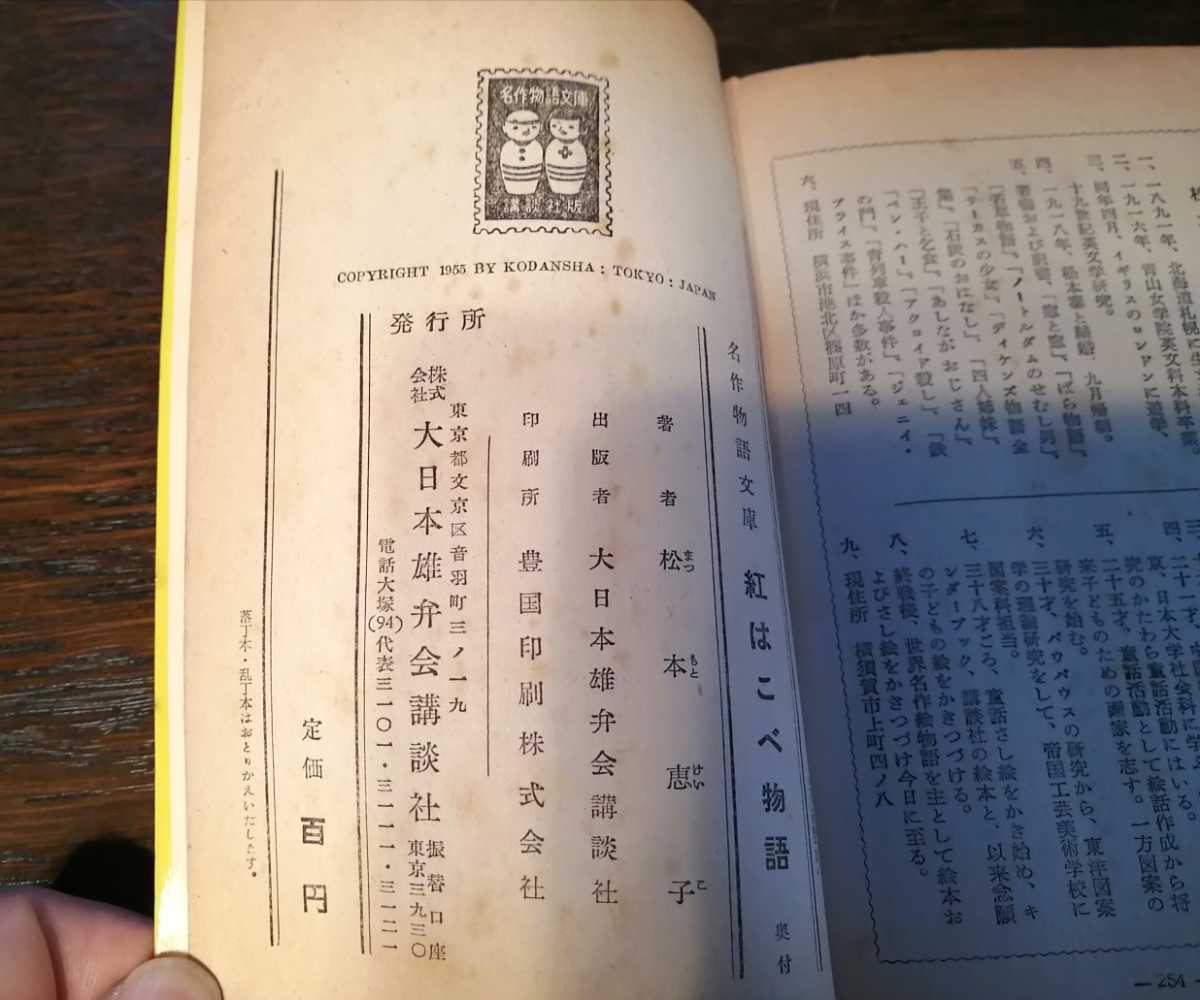 一、一八九一年、北海道札幌に
二、一九一六年、青山女学院英文科本科卒業。
三、同年四月、イギリスのロンドンに遊学、
十九世紀英文学研究。
四、一九一八年、松本泰と結婚、九月帰朝。
五、著書および訳書、「窓と窓」、「ばら物語」、
「若草物語」、「ノートルダムのせむし男」、
「サーカスの少女」、「ディケンズ物語全
集」、「石炭のおはなし」、「四人姉妹」、
「王子と乞食」、「あしながおじさん」、「鉄
の門」、「青列車殺人事件」、「ジェニイ・
ブライス事件」ほか多数がある。
六、現住所 横浜市港北区篠原町一四
四、二十一才、
京、日本大学社会科に学
究のかたわら童話活動にはいる。
五、二十五才、童話活動として絵話作成から将
来子どものための画家を志す。一方図案の
研究を始む。
六、三十才、バウハウスの研究から、東洋図案
学の理論研究をして、帝国工芸美術学校に
図案科担当。
七、三十八才ごろ、童話さし絵をかき始め、キ
ンダーブック、講談社の絵本と、以来念願
の子どもの絵をかきつづける。
八、終戦後、世界名作絵物語を主として絵本お
よびさし絵をかきつづけ今日に至る。
九、現住所 横須賀市上町四ノ八
— 254 —
名作物語文庫
講談社版
COPYRIGHT 1955 BY KODANSHA : TOKYO : JAPAN
名作物語文庫 紅はこべ物語 奥付
著者 松本恵子
まつもとけいこ
出版者 大日本雄弁会講談社
印刷所 豊国印刷株式会社
発行所
東京都文京区音羽町三ノ一九
株式会社 大日本雄弁会講談社 振替口座東京三九三〇
電話大塚(94)代表三一〇一・三一一一・三一二一
定価 百円
落丁本・乱丁本はおとりかえいたします。